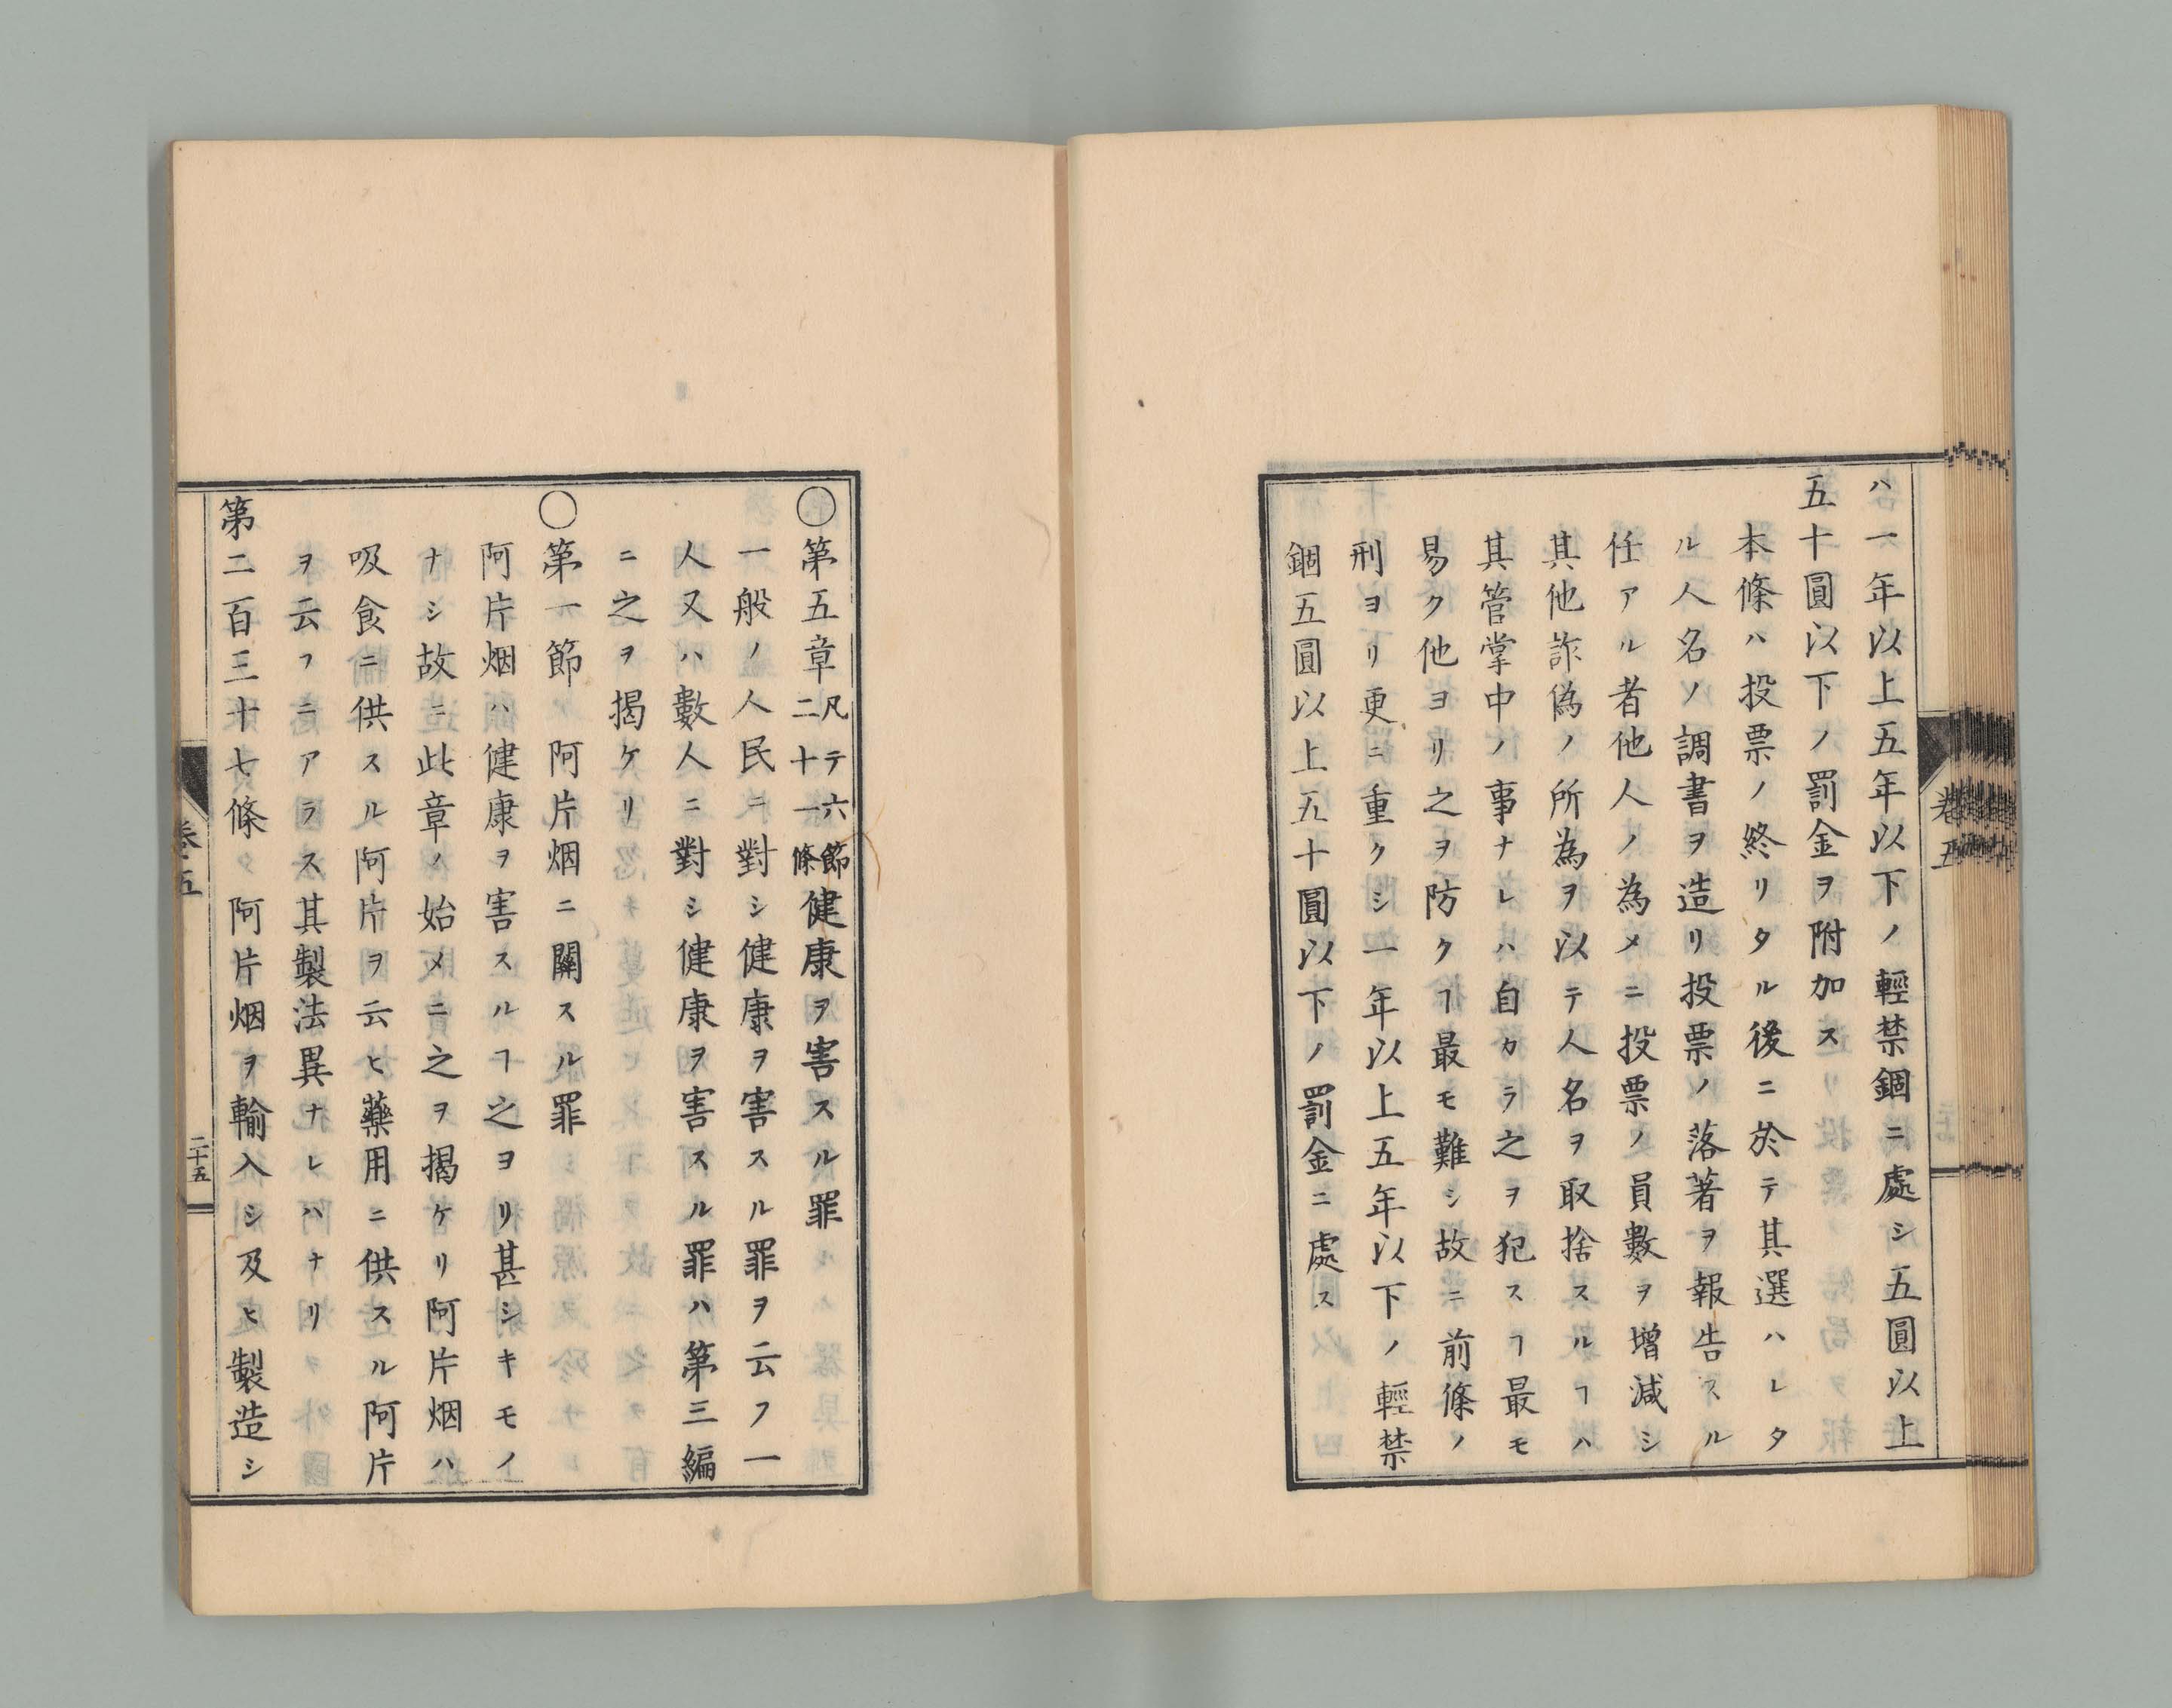 ハ一年以上五年以下ノ輕禁錮ニ處シ五圓以上
五十圓以下ノ罰金ヲ附加ス
本條ハ投票ノ終リタル後ニ於テ其選ハレタ
ル人名ノ調書ヲ造リ投票ノ落著ヲ報告スル
任アル者他人ノ為メニ投票ノ員數ヲ增減シ
其他詐偽ノ所為ヲ以テ人名ヲ取捨スルヿハ
其管掌中ノ事ナレハ自カラ之ヲ犯スヿ最モ
易ク他ヨリ之ヲ防クヿ最モ難シ故ニ前條ノ
刑ヨリ更ニ重クシ一年以上五年以下ノ輕禁
錮五圓以上五十圓以下ノ罰金ニ處ス
卷五
○第五章凡テ六節二十一條健康ヲ害スル罪
一般ノ人民ニ對シ健康ヲ害スル罪ヲ云フ一
人又ハ數人ニ對シ健康ヲ害スル罪ハ第三編
ニ之ヲ揭ケリ
○第一節 阿片烟ニ關スル罪
阿片烟ハ健康ヲ害スルヿ之ヨリ甚シキモノ
ナシ故ニ此章ノ始メニ之ヲ揭ケリ阿片烟ハ
吸食ニ供スル阿片ヲ云ヒ藥用ニ供スル阿片
ヲ云フニアラス其製法異ナレハナリ
第二百三十七條 阿片烟ヲ輸入シ及ヒ製造シ
卷五
二十五